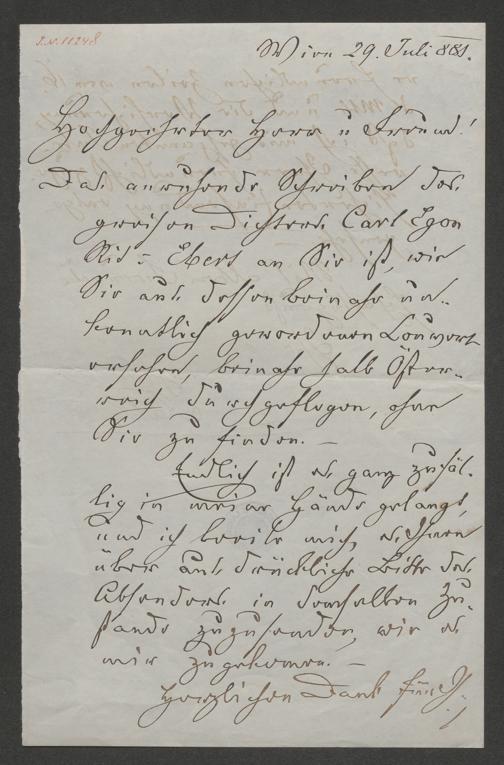 I.N. 11248
Wien 29. Juli 881.
Hochgeehrter Herr u Freund!
Das anruhende Schreiben des
greisen Dichters Carl Egon
Rit. Ebert an Sie ist, wie
Sie aus dessen beinahe un-
kenntlich gewordenen Couvert
ersehen, beinahe halb Öster-
reich durchgeflogen, ohne
Sie zu finden. —
Endlich ist es ganz zufäl-
lig in meine Hände gelangt,
und ich beeile mich, es Ihnen
über ausdrückliche Bitte des
Absenders in demselben Zu-
stande zuzusenden, wie es
mir zugekommen. —
Herzlichen Dank für